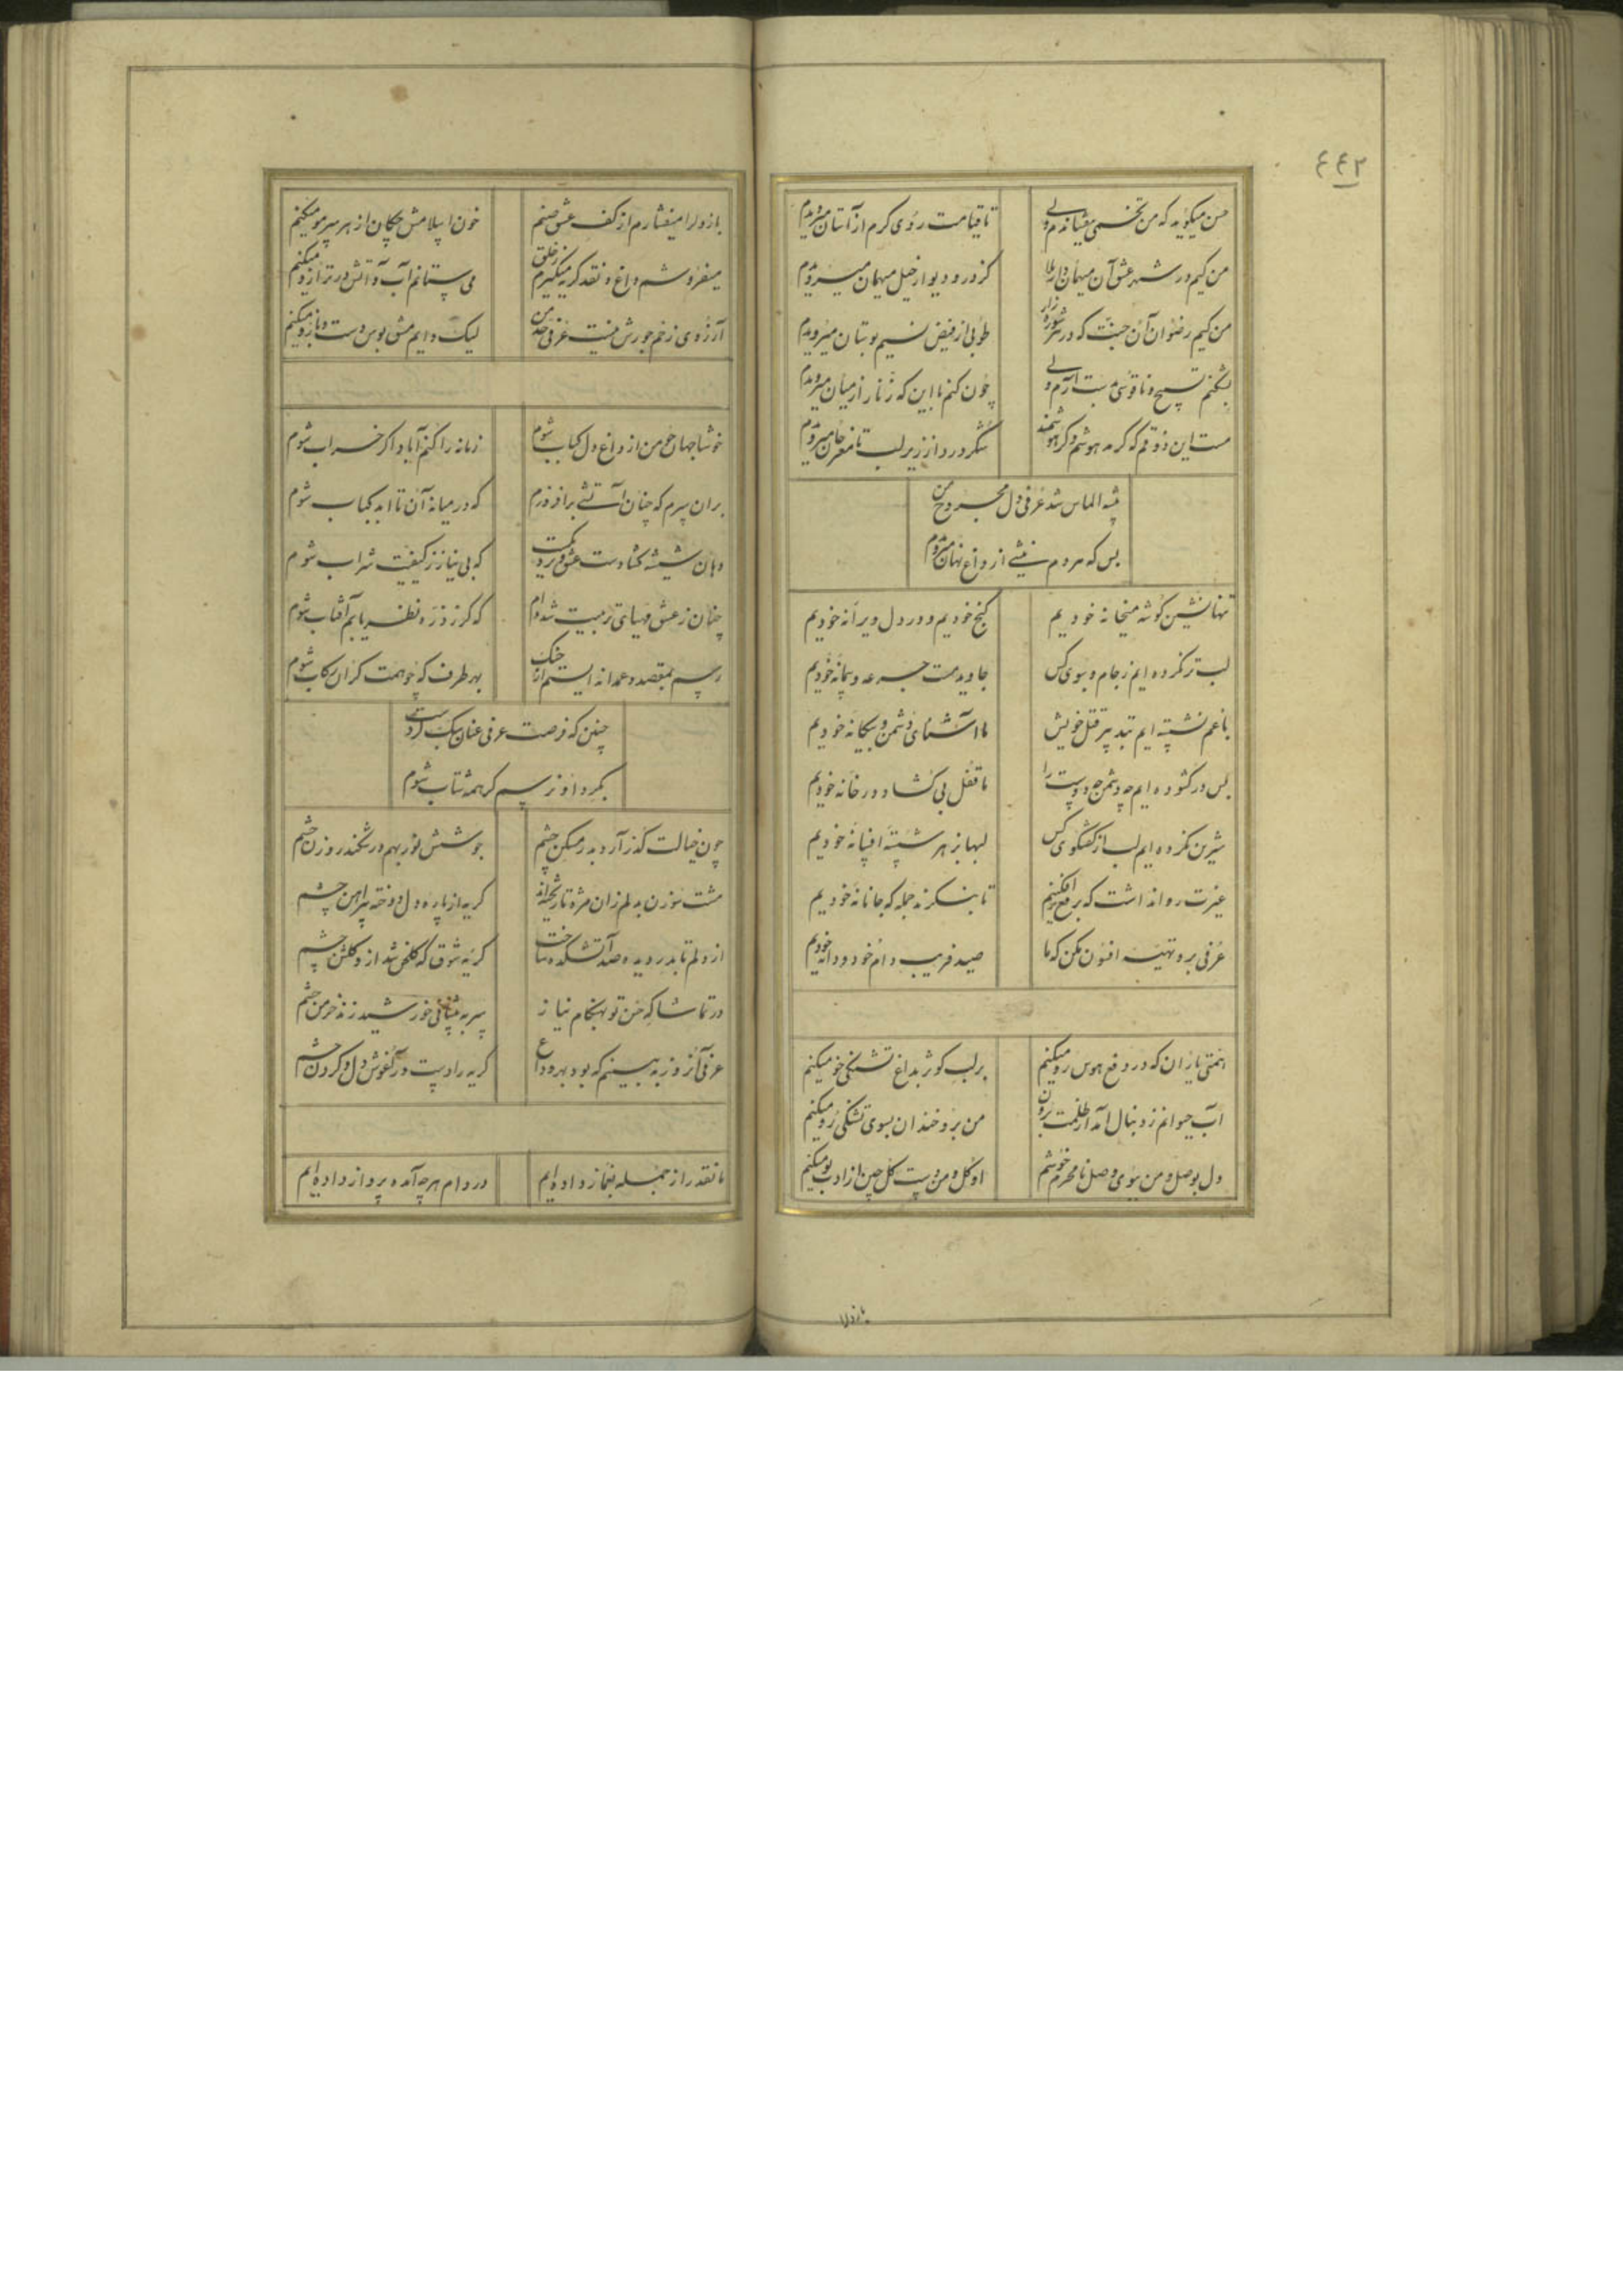 ٤٤٢
حسن میگوید که من تخمی میفشاندم ولی
تا قیامت روی کرم از آستان میرویدم
من کیم در شهر عشق آن میهمان
کز در و دیوار خیل میهمان میرویدم
من کیم رضوان آن جنت که در شوره زار
طوبی از فیض نسیم بوستان میرویدم
بشکنم تسبیح و ناقوسی بدست آرم ولی
چون کنم با این که زنار از میان میرویدم
مست این ذوقم که کر مدهوشم و کر هوشمند
شکر درد از زیر لب تا مغز جان میرویدم
شه الماس شد عرفی دل مجروح من
بس که هر دم نیشی از داغ نهان میرویدم
تنها نشین کوشه میخانه خودیم
کنج خودیم و در دل ویرانه خودیم
لب تر نکرده ایم ز جام و سبوی کس
جاوید مست جرعه و پیمانه خودیم
با غم نشسته ایم بتدبیر قتل خویش
ما آشنای دشمن و بیکانه خودیم
بس در کشوده ایم چه دشمن چه دوست را
ما قفل بی کشاد در خانه خودیم
شیرین نکرده ایم لب از کفتکوی کس
لبها بزهر شسته افسانه خودیم
غیرت روا نداشت که برقع برافکنیم
تا بنکرند جمله که جانانه خودیم
عرفی برو تهیه افسون مکن که ما
صید فریب دام خود و دانه خودیم
همتی یاران که در دفع هوس رو میکنم
بر لب کوثر بداغ تشنکی خو میکنم
آب حیوانم ز دنبال آمد از ظلمت برون
من برو خندان بسوی تشنکی رو میکنم
دل بوصل و من ببوی وصل نامحرم خوشم
او کل و من دست کل چین از ادب بو میکنم
باز دلرا
باز دلرا میفشارم از کف عشق صنم
خون اسلامش چکان از هر سر مو میکنم
میفروشم داغ و نقد کریه میکیرم ز خلق
می ستانم آب و آتش در ترازو میکنم
آرزوی زخم جورش نیست عرفی حد من
لیک دایم مشق بوس دست و بازو میکنم
خوشا جهان چو من از داغ دل کباب شوم
زمانه را کنم آباد اکر خراب شوم
بران سرم که چنان آتشی برافروزم
که در میانه آن تا ابد کباب شوم
دهان شیشه کشادست عشق
که بی نیاز ز کیفیت شراب شوم
چنان ز عشق مهیای تربیت شده‌ام
که کر ز ذره نظر یابم آفتاب شوم
رسم بمقصد و عمدا نه ایستم از خنک
بهر طرف که چو همت کران رکاب شوم
چنین که فرصت عرفی عنان سبک کردست
بکرد او نرسم کر همه شتاب شوم
چون خیالت کذر آرد بدر مسکن چشم
جوشش نور بهم در شکند روزن چشم
مشت سوزن بدلم زان مژه تا ریخته‌اند
کریه از پاره دل دوخته پیراهن چشم
از دلم تا بدر دیده صد آتشکده ساخت
کریه شوق که کلخن شد ازو کلشن چشم
در تماشا که حسن تو بهنکام نیاز
سر به پیشانی خورشید زند خرمن چشم
عرفی آنروز به بینم که بود بهر وداع
کریه را دست در آغوش دل و کردن چشم
ما نقد راز جمله بغماز داده‌ایم
در دام هرچه آمده پرواز داده‌ایم